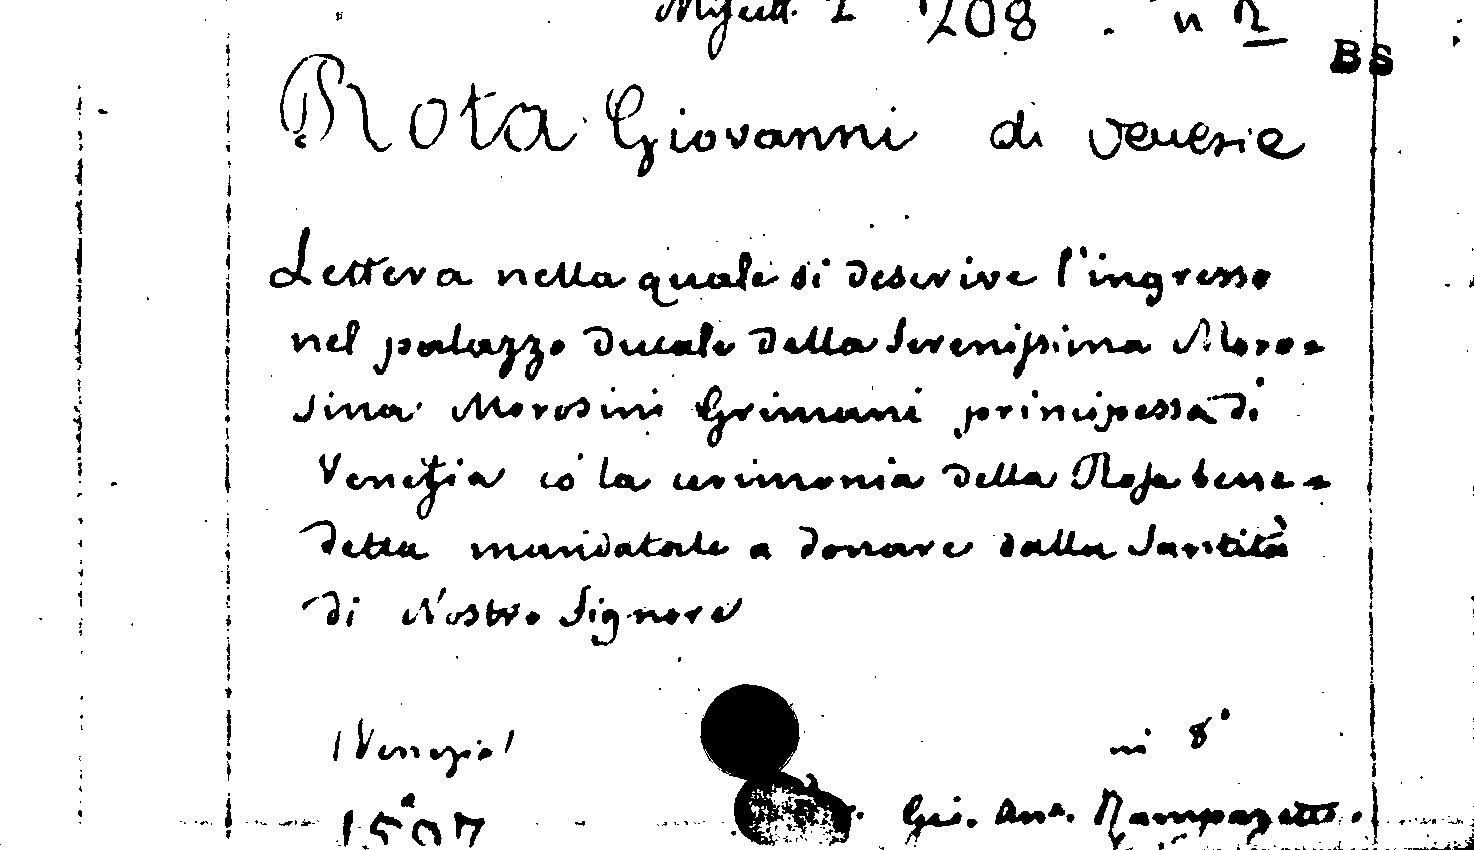 Miscell. 2 208 . n 2
BS
Rota Giovanni di Venesia
Lettera nella quale si descrive l'ingresso
nel palazzo ducale della Serenissima Moro=
sina Morosini Grimani principessa di
Venezia cō la cerimonia della Rosa bene=
detta mandatale a donare dalla Santità
di Nostro Signore
(Venezia)
in 8°
1597
Gio. Ant. Rampazetto.